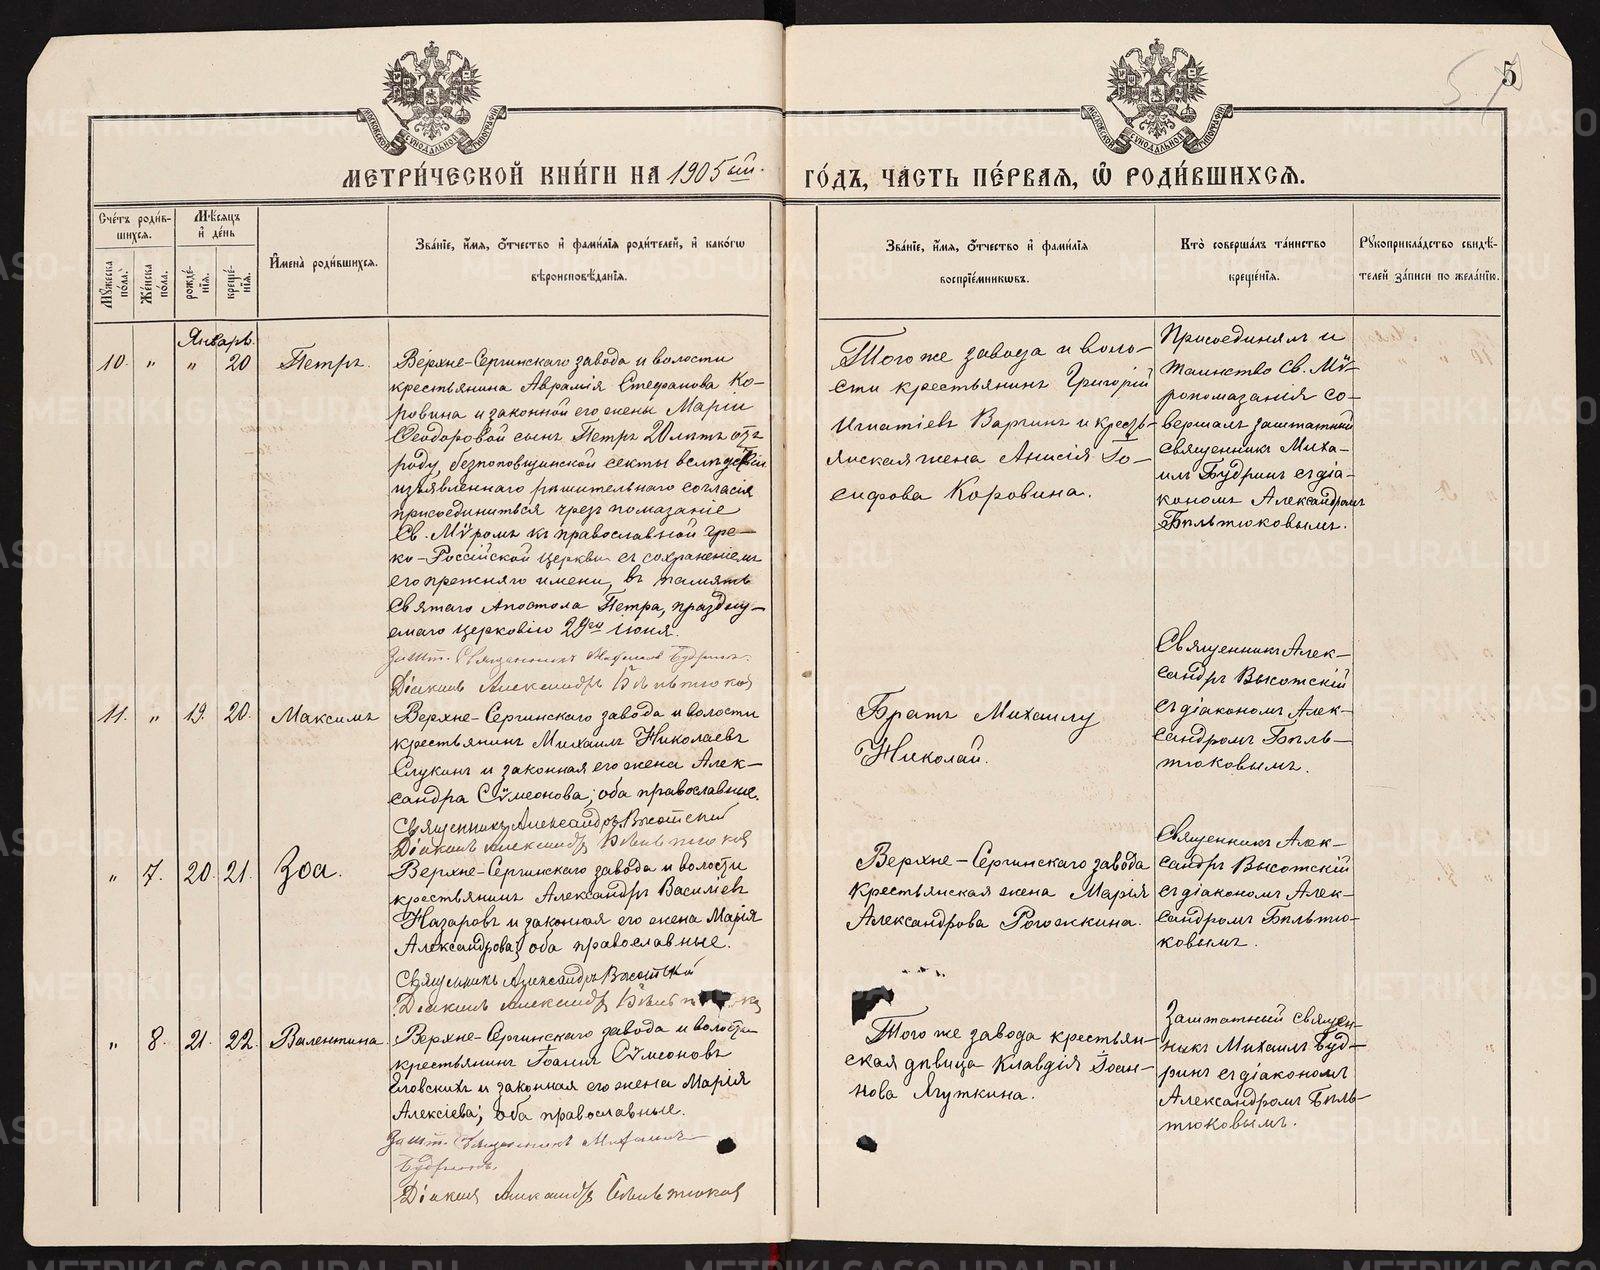 5
МОСКОВСКОЙ СѴНОДАЛЬНОЙ ТИПОГРАФІИ
МОСКОВСКОЙ СѴНОДАЛЬНОЙ ТИПОГРАФІИ
МЕТРИ́ЧЕСКОЙ КНИ́ГИ НА 1905ый.
ГО́ДЪ, ЧА́СТЬ ПЕ́РВАѦ, Ѡ҆ РОДИ́ВШИХСѦ.
Сче́тъ роди́в-
шихсѧ.
Мꙋ́жеска по́ла.
Же́нска по́ла.
Мѣ́сѧцъ
и҆ де́нь
рожде́-
нїѧ.
креще́-
нїѧ.
И҆мена̀ роди́вшихсѧ.
Зва́нїе, и҆́мѧ, ѻ҆́тчество и҆ фами́лїѧ роди́телей, и҆ како́гѡ
вѣроисповѣ́данїѧ.
Зва́нїе, и҆́мѧ, ѻ҆́тчество и҆ фами́лїѧ
воспрїе́мникѡвъ.
Кто̀ соверша́лъ та́инство
креще́нїѧ.
Рꙋкоприкла́дство свидѣ́-
телей за́писи по жела́нїю.
Январь.
10. " " 20 Петръ.
Верхне-Сергинскаго завода и волости
крестьянина Аврамія Стефанова Ко-
ровина и законной его жены Маріи
Ѳеодоровой сынъ Петръ 20 лѣтъ отъ
роду, безпоповщинской секты вслѣдствіи
изъявленнаго рѣшительнаго согласія
присоединиться чрезъ помазаніе
Св. Мѵромъ къ православной Гре-
ко-Россійской Церкви съ сохраненіемъ
его прежняго имени, въ память
Святаго Апостола Петра, праздну-
емаго Церковію 29го Іюня.
Зашт. Священникъ Михаилъ Будринъ.
Діаконъ Александръ Бѣльтюковъ
Того же завода и воло-
сти крестьянинъ Григорій
Игнатіевъ Варгинъ и кресть-
янская жена Анисія Іо-
сифова Коровина.
Присоединялъ и
таинство Св. Мѵ-
ропомазанія со-
вершалъ заштатный
священникъ Миха-
илъ Будринъ съ діа-
кономъ Александромъ
Бѣльтюковымъ.
11. " 19. 20. Максимъ
Верхне-Сергинскаго завода и волости
крестьянинъ Михаилъ Николаевъ
Слукинъ и законная его жена Алек-
сандра Сѵмеонова; оба православные.
Священникъ Александръ Высотскій
Діаконъ Александръ Бѣльтюковъ
Братъ Михаилу
Николай.
Священникъ Алек-
сандръ Высотскій
съ діакономъ Алек-
сандромъ Бѣль-
тюковымъ.
" 7. 20. 21. Зоа.
Верхне-Сергинскаго завода и волости
крестьянинъ Александръ Василіевъ
Назаровъ и законная его жена Марія
Александрова; оба православные.
Священникъ Александръ Высотскій
Діаконъ Александръ
Верхне-Сергинскаго завода
крестьянская жена Марія
Александрова Рогожкина.
Священникъ Алек-
сандръ Высотскій
съ діакономъ Алек-
сандромъ Бѣльтю-
ковымъ.
" 8. 21. 22. Валентина.
Верхне-Сергинскаго завода и волости
крестьянинъ Іоаннъ Сѵмеоновъ
Еловскихъ и законная его жена Марія
Алексіева; оба православные.
Зашт. Священникъ Михаилъ
Будринъ.
Діаконъ Александръ Бѣльтюковъ
Того же завода крестьян-
ская дѣвица Клавдія Іоан-
нова Ягуткина.
Заштатный священ-
никъ Михаилъ Буд-
ринъ съ діакономъ
Александромъ Бѣль-
тюковымъ.
METRIKI.GASO-URAL.RU